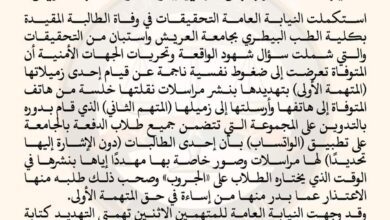 استكملت النيابة العامة التحقيقات في وفاة الطالبة المقيدة
بكلية الطب البيطري بجامعة العريش واستبان من التحقيقات
والتي شملت سؤال شهود الواقعة وتحريات الجهات الأمنية أن
المتوفاة تعرضت إلى ضغوط نفسية ناجمة عن قيام إحدى زميلاتها
(المتهمة الأولى) بتهديدها بنشر مراسلات نقلتها خلسة من هاتف
المتوفاة إلى هاتفها وأرسلتها إلى زميلها (المتهم الثاني) الذي قام بدوره
بالتدوين على المجموعة التي تتضمن جميع طلاب الدفعة بالجامعة
على تطبيق (الواتساب) بأن إحدى الطالبات (دون الإشارة إليها
تحديدًا) لها مراسلات وصور خاصة بها مهددًا إياها بنشرها في
الوقت الذي يختاره الطلاب على «الجروب» وصحب ذلك طلبه منها
الاعتذار عما بدر منها من إساءة في حق المتهمة الأولى.
وقد وجهت النيابة العامة للمتهمين الاثنين تهمتي التهديد كتابة